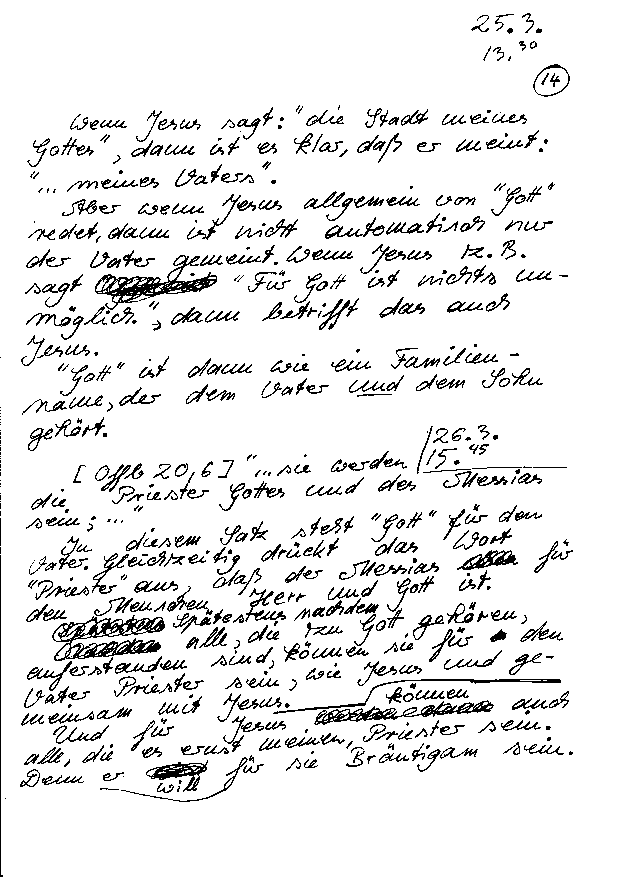 25.3.
13.30
14
Wenn Jesus sagt: "die Stadt meines
Gottes", dann ist es klar, daß er meint:
"... meines Vaters".
Aber wenn Jesus allgemein von "Gott"
redet, dann ist nicht automatisch nur
der Vater gemeint. Wenn Jesus z.B.
sagt "Für Gott ist nichts un-
möglich.", dann betrifft das auch
Jesus.
"Gott" ist dann wie ein Familien-
name, der dem Vater und dem Sohn
gehört.
26.3.
15.45
[Offb 20,6] "... sie werden
die Priester Gottes und des Messias
sein; ..."
In diesem Satz steht "Gott" für den
Vater. Gleichzeitig drückt das Wort
"Priester" aus, daß der Messias für
den Menschen Herr und Gott ist.
Spätestens nachdem
alle, die zu Gott gehören,
auferstanden sind, können sie für den
Vater Priester sein, wie Jesus und ge-
meinsam mit Jesus.
Und für Jesus können auch
alle, die es ernst meinen, Priester sein.
Denn er will für sie Bräutigam sein.